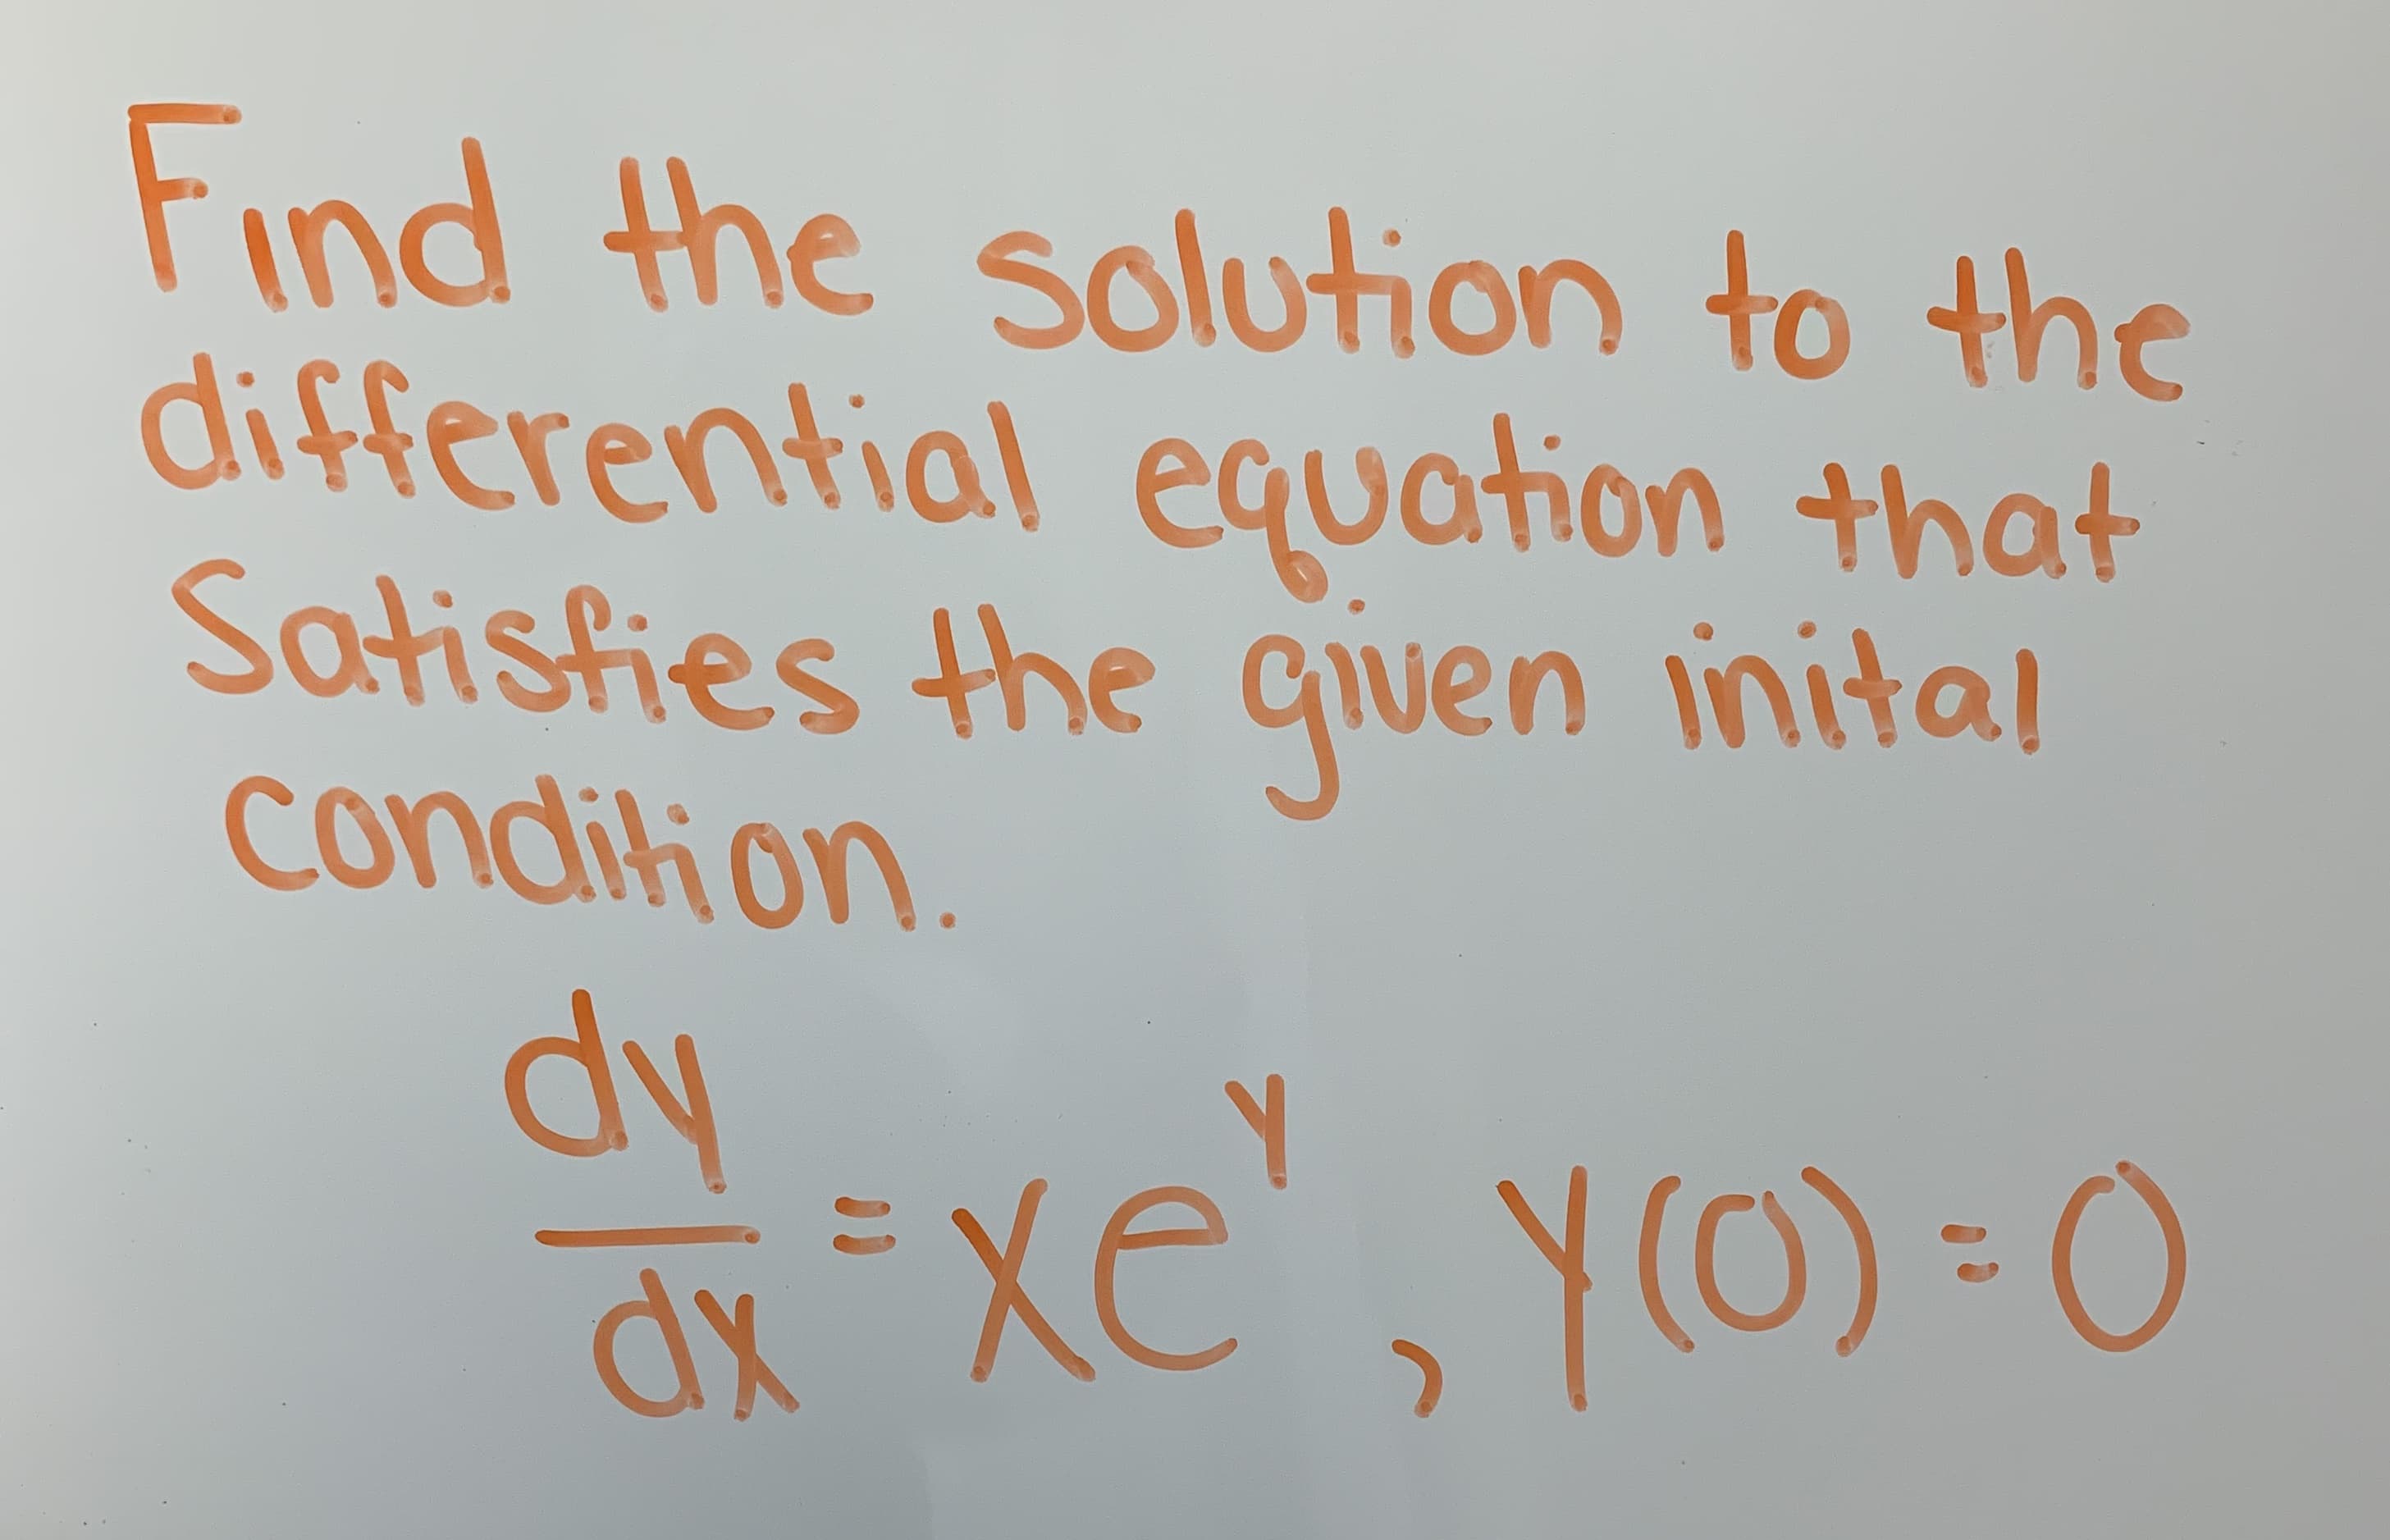 Find the solution to the
differential equation that
Satisfies the given inital
condition.
dy/dx = xe^y, y(0) = 0